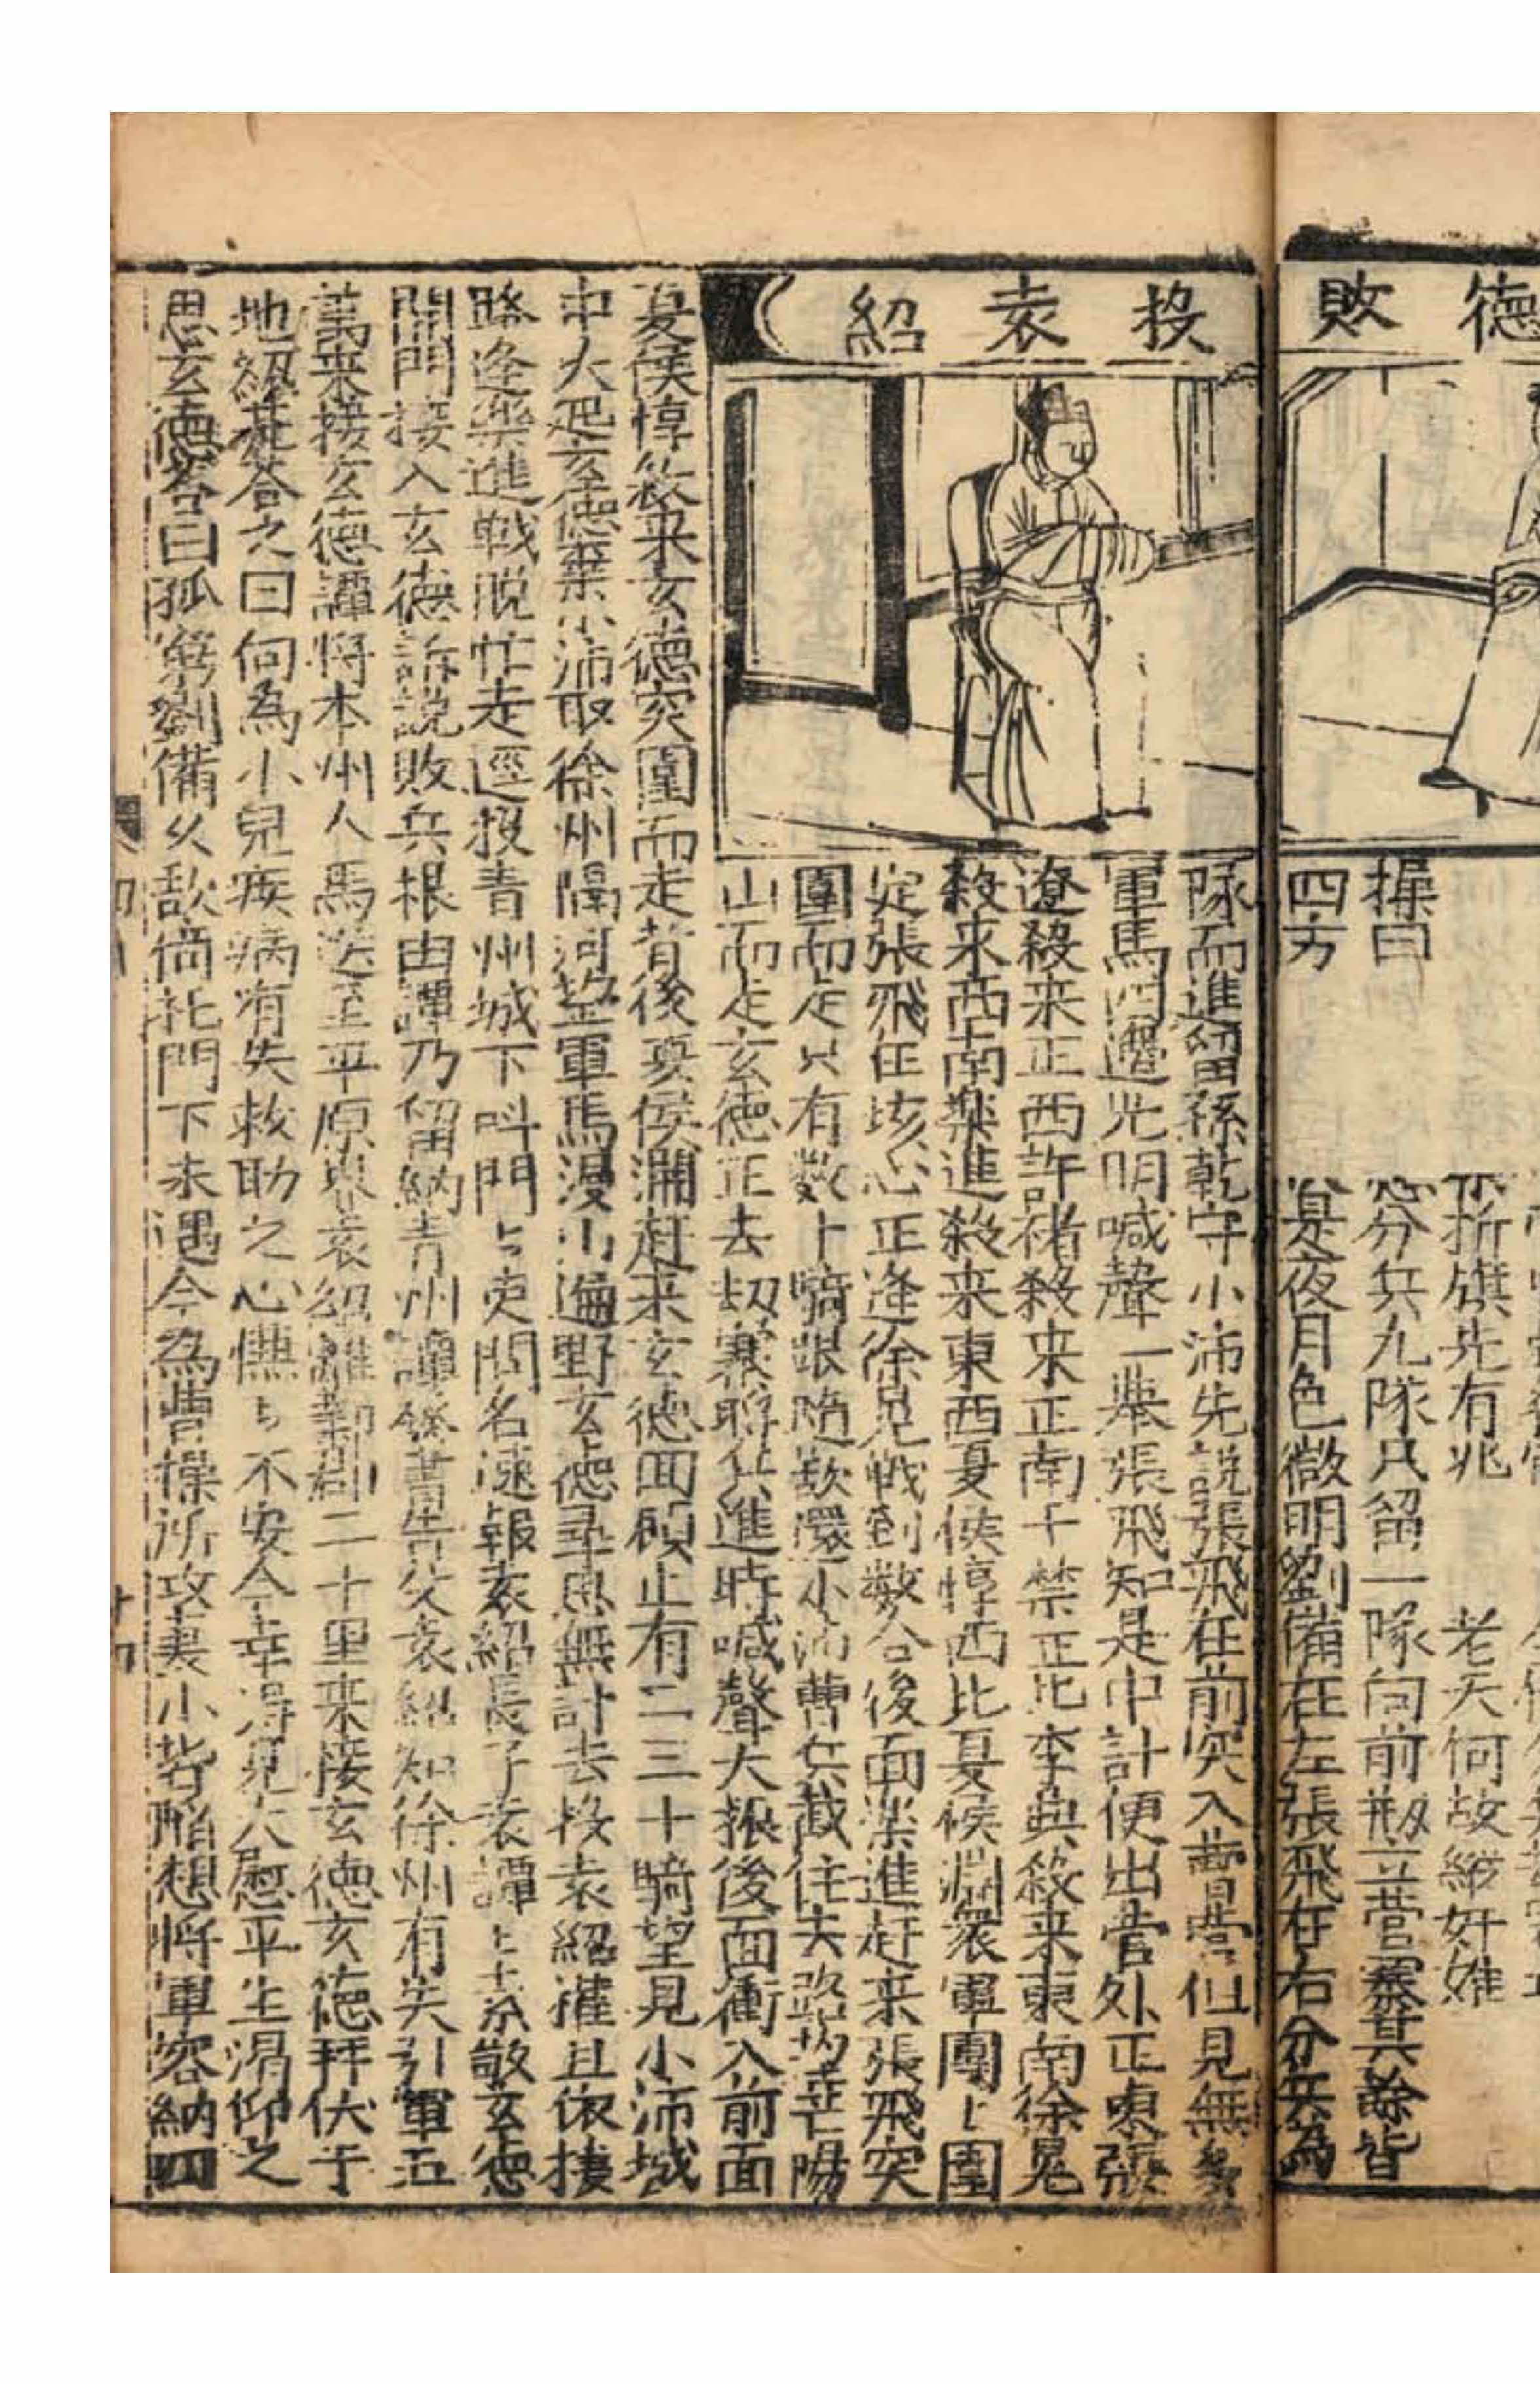 德敗
折旗先有兆　老天何故縱奸雄
操曰
分兵九隊只留一隊向前虛立營寨其餘皆
四方
是夜月色微明劉備在左張飛在右分兵為
投袁紹
隊而進留孫乾守小沛先說張飛在前突入曹營但見無多
軍馬四邊光明喊聲一舉張飛知是中計便出營外正東張
遼殺来正西許禇殺来正南于禁正北李典殺来東南徐晃
殺来西南樂進殺来東西夏侯惇西北夏侯淵衆軍團〻圍
定張飛在垓心正逢徐晃戰到数合後面樂進赶来張飛突
圍而走只有数十騎跟隨欲還小沛曹兵截住去路投芒陽
山而走玄德正去刼寨將兵進時喊聲大振後面衝入前面
夏侯惇殺来玄德突圍而走背後夏侯淵赶来玄德回顧止有二三十騎望見小沛城
中火起玄德棄小沛取徐州隔河望軍馬漫山遍野玄德尋思無計去投袁紹權且依棲
路逢樂進戰脫忙走逕投青州城下叫門〻吏問名速報袁紹長子袁譚〻素敬玄德
開門接入玄德訴說敗兵根由譚乃留納青州譚發書告父袁紹知徐州有失引軍五
萬来接玄德譚將本州人馬送至平原界袁紹離鄴郡二十里来接玄德玄德拜伏于
地紹忙荅之曰向為小兒疾病有失救助之心懨〻不安今幸得見大慰平生渴仰之
思玄德荅曰孤窮劉備久欲倚托門下未遇今為曹操所攻妻小皆陷想將軍容納四